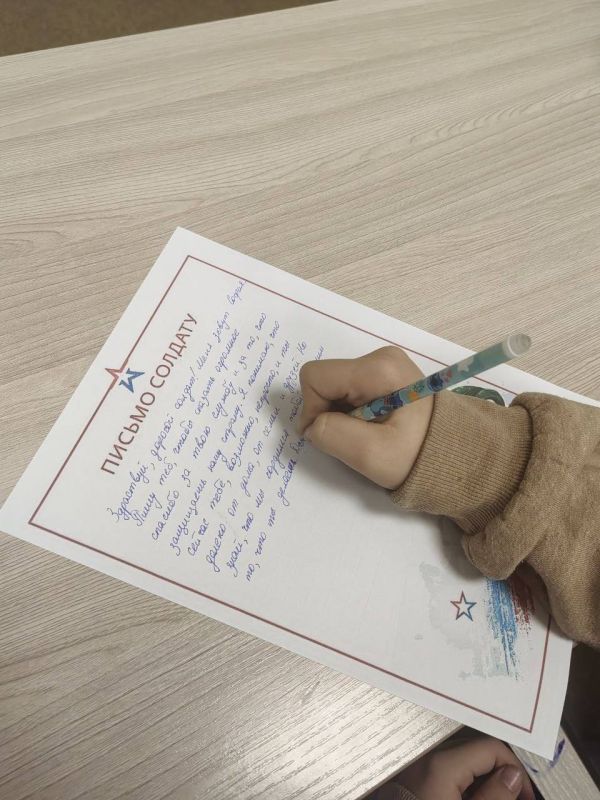 ПИСЬМО СОЛДАТУ
Здравствуй, дорогой солдат! Меня зовут
Пишу тебе, чтобы сказать огромное
спасибо за твою службу и за то, что
защищаешь нашу страну. Я понимаю, что
сейчас тебе, возможно, непросто, и ты
далеко от дома, от семьи и друзей. Но
знай, что мы гордимся тобой
то, что ты делаешь